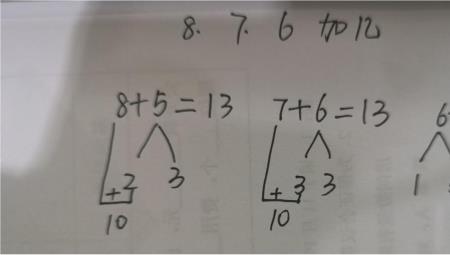 8. 7. 6 加几
8+5=13 7+6=13 6
+2 3 +3 3 1
10 10